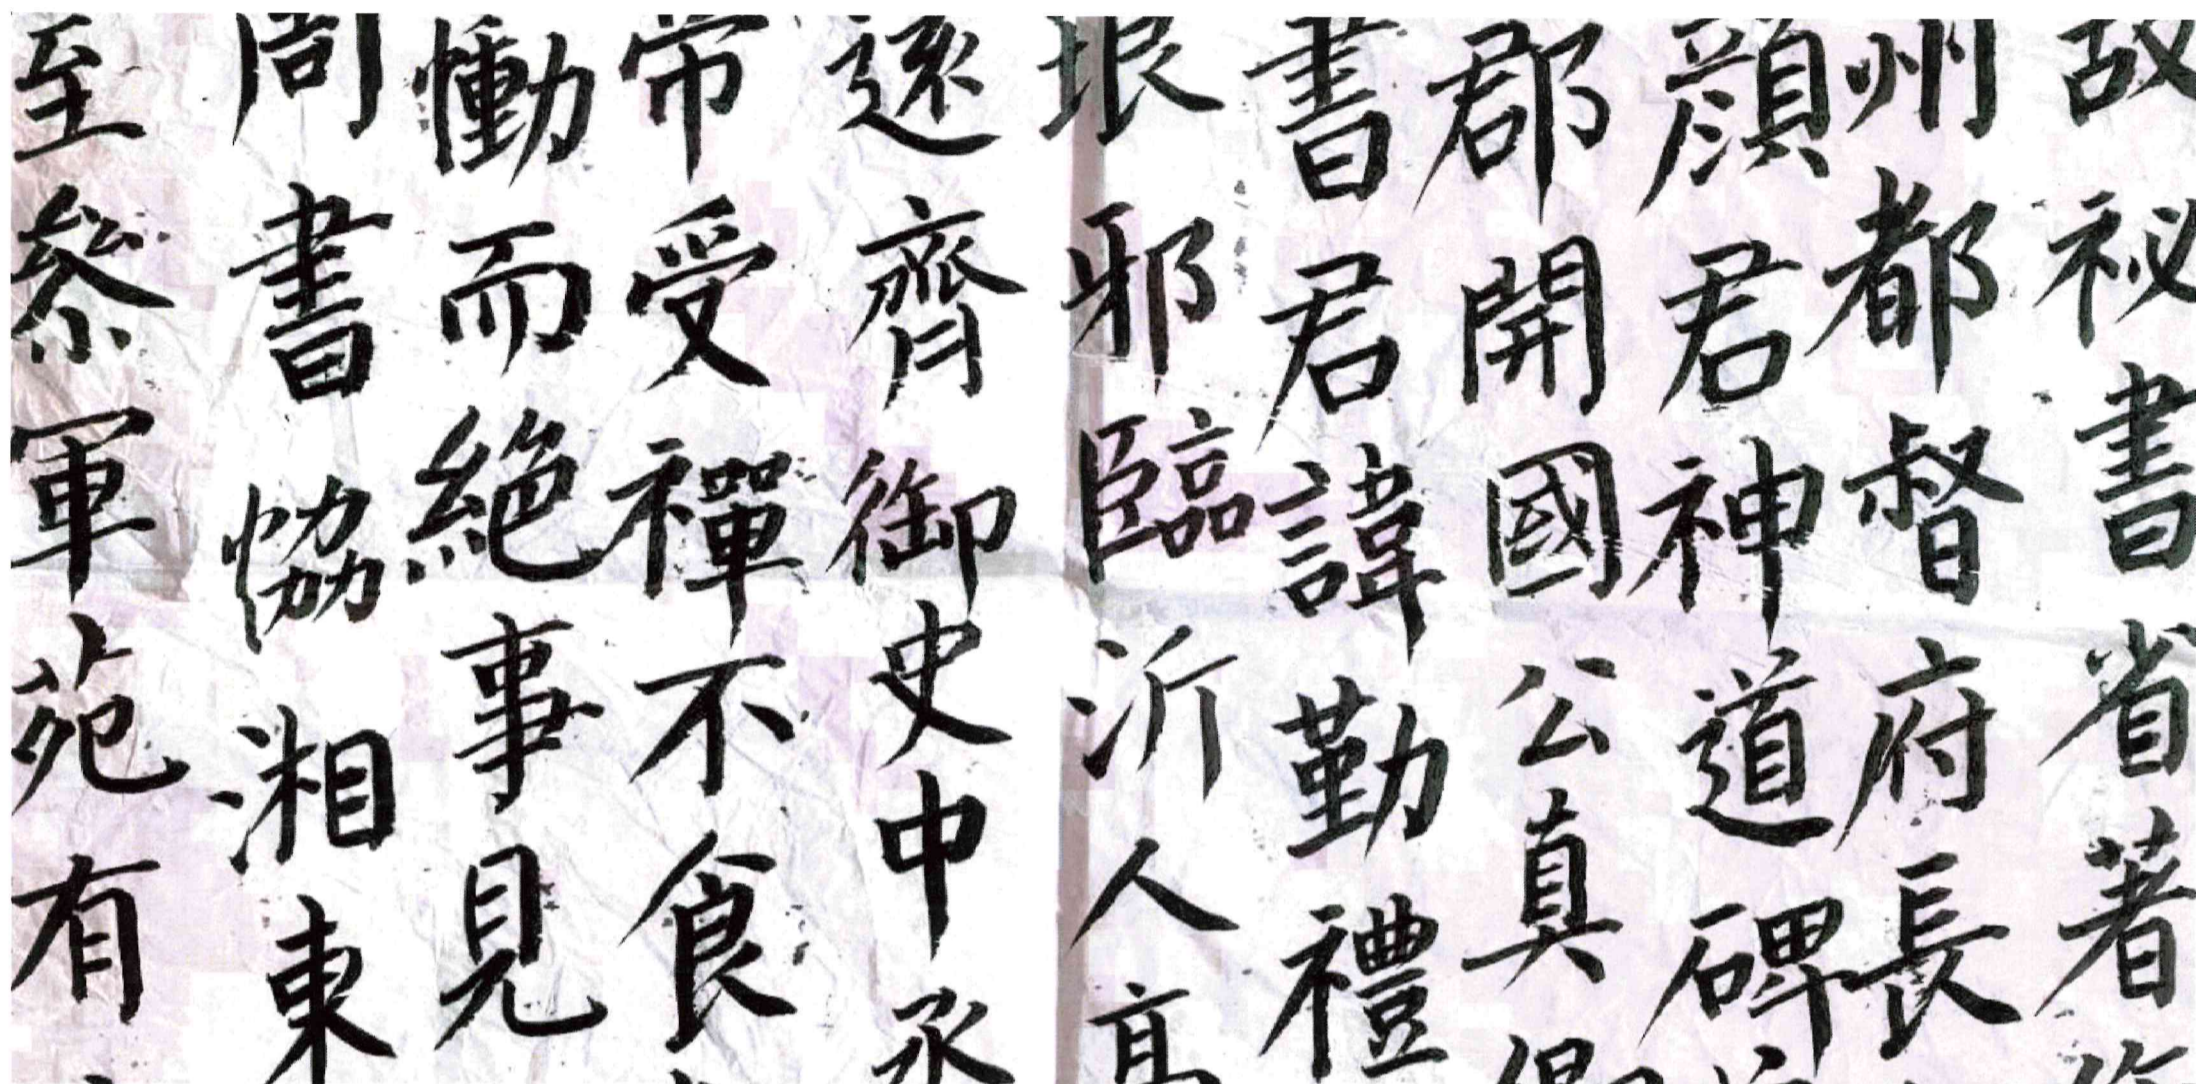 故祕書省著
州都督府長
顏君神道碑
郡開國公真
書君諱勤禮
邪臨沂人高
逐齊御史中丞
帝受禪不食
慟而絕事見
周書協湘東
至參軍苑有